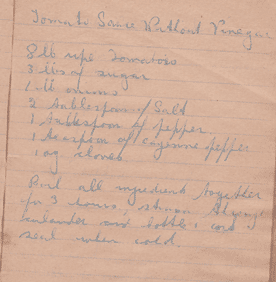 Tomato Sauce Without Vinegar
8 lb ripe Tomatoes
3 lbs of sugar
1 lb onions
2 tablespoon of Salt
1 tablespoon of pepper
1 teaspoon of cayenne pepper
1 oz cloves
Boil all ingredients together
for 3 hours, strain through
culander and bottle, cork
seal when cold.